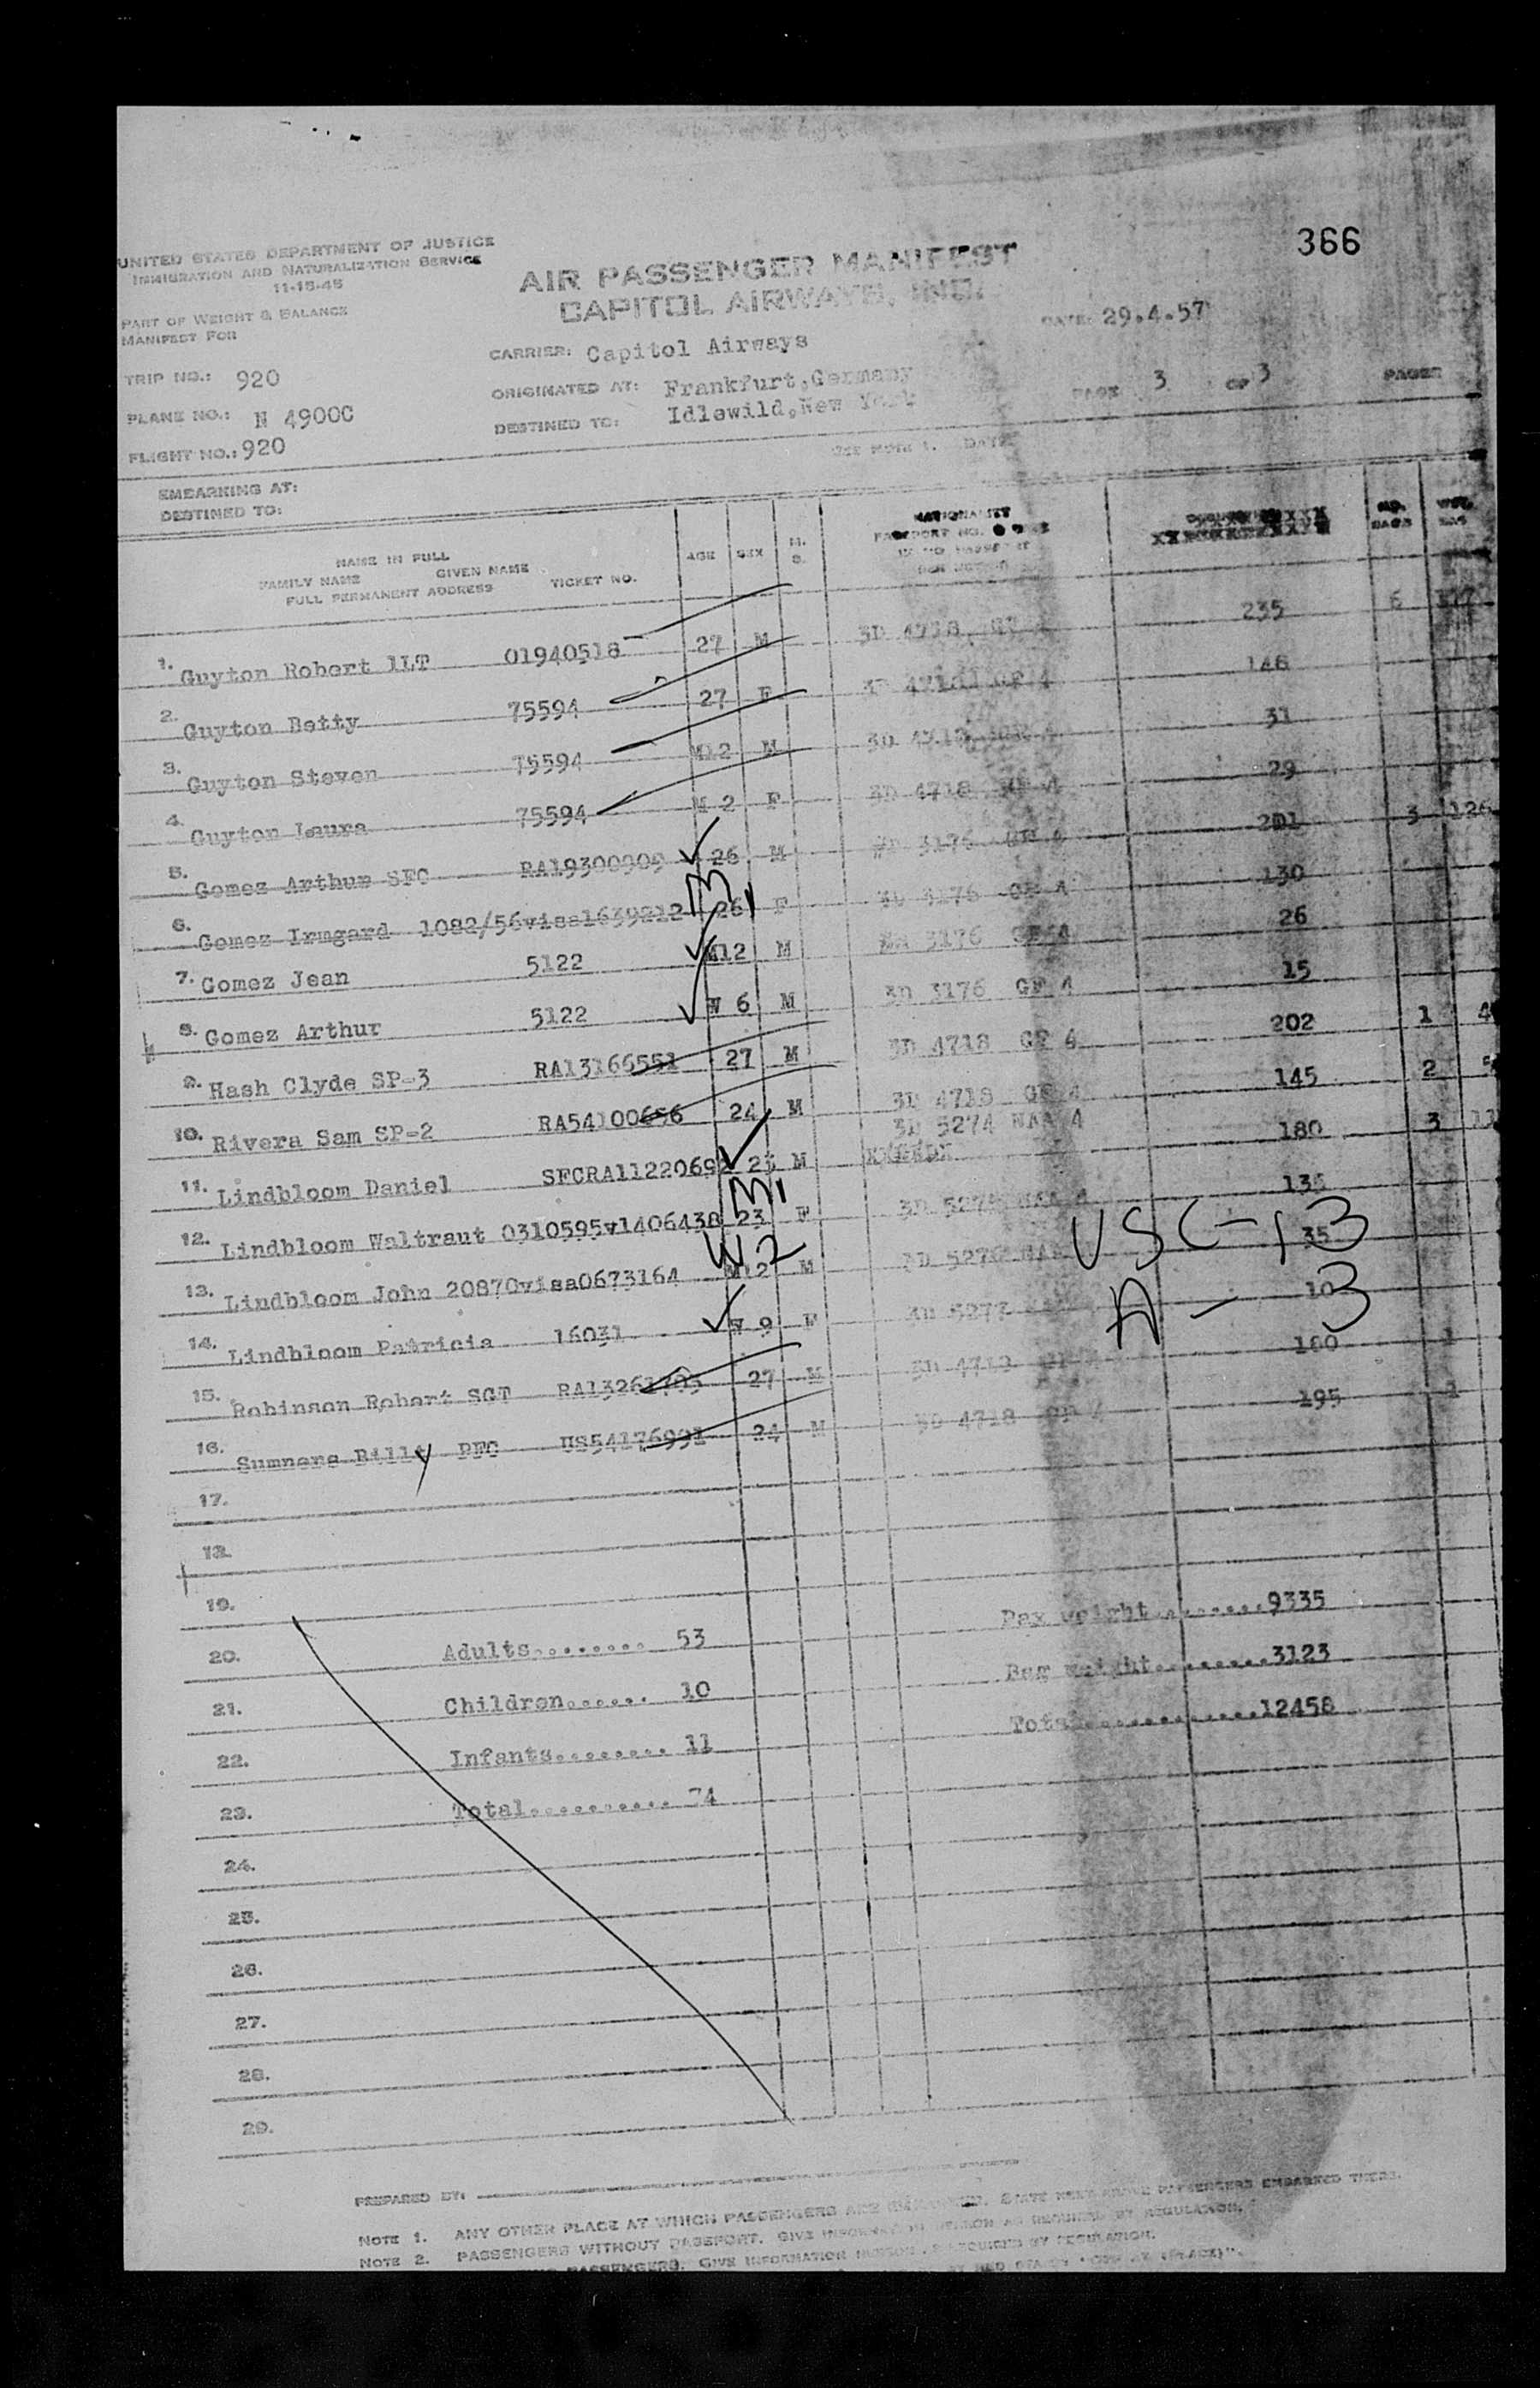 366
UNITED STATES DEPARTMENT OF JUSTICE
IMMIGRATION AND NATURALIZATION SERVICE
11-15-45
AIR PASSENGER MANIFEST
CAPITOL AIRWAYS, INC.
PART OF WEIGHT & BALANCE
MANIFEST FOR
DATE: 29.4.57
CARRIER: Capitol Airways
TRIP NO.: 920
ORIGINATED AT: Frankfurt,Germany
PAGE 3 OF 3 PAGES
PLANE NO.: N 4900C
DESTINED TO: Idlewild,New York
FLIGHT NO.: 920
SEE NOTE 1. DATE
EMBARKING AT:
DESTINED TO:
NAME IN FULL
FAMILY NAME GIVEN NAME
FULL PERMANENT ADDRESS TICKET NO.
AGE SEX M. S.
NATIONALITY
PASSPORT NO.
NO. BAGS WGT.
1. Guyton Robert 1LT 01940518 27 M 3D 4718 235 6
2. Guyton Betty 75594 27 F 146
3. Guyton Steven 75594 M12 M 31
4. Guyton Laura 75594 M 2 F 3D 4718 29
5. Gomez Arthur SFC RA19300909 26 M 3176 201 3 126
6. Gomez Irmgard 1082/56visa1639212 26 F 3D 3176 GF 4 130
7. Gomez Jean 5122 M12 M 3176 GF 4 26
8. Gomez Arthur 5122 W 6 M 3D 3176 GF 4 15
9. Hash Clyde SP-3 RA13166551 27 M 3D 4718 GF 4 202 1
10. Rivera Sam SP-2 RA54100656 24 M 3D 4718 GF 4 145 2
3D 5274 NAA 4
11. Lindbloom Daniel SFCRA11220692 23 M 180 3
12. Lindbloom Waltraut 0310595v1406438 23 F
M1
USC-13
13. Lindbloom John 20870visa0673164 M12 M 35
W2
A - 3
14. Lindbloom Patricia 16031 W 9 F 10
15. Robinson Robert SGT 27 M 3D 4718 160 1
16. Sumners Billy PFC US54176991 24 M 3D 4718 GF 4 195 1
17.
18.
19.
Pax weight........9335
20. Adults........ 53
Bag weight........3123
21. Children...... 10
Total.............12458
22. Infants........ 11
23. Total........... 74
24.
25.
26.
27.
28.
29.
PREPARED BY:
NOTE 1. ANY OTHER PLACE AT WHICH PASSENGERS ARE PASSENGERS EMBARKED THERE.
NOTE 2. PASSENGERS WITHOUT PASSPORT. GIVE INFORMATION AS REQUIRED BY REGULATION.
PASSENGERS. GIVE INFORMATION REQUIRED BY REGULATION.